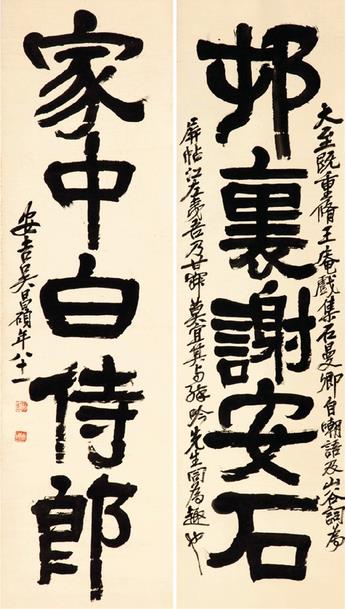 邨裏謝安石
大至既重脩王庵戲集石曼卿自嘲語及山谷詞為
屏帖江左夷吾乃甘
莫宜其與
吟先生同為趣也
家中白侍郎
安吉吳昌碩年八十一